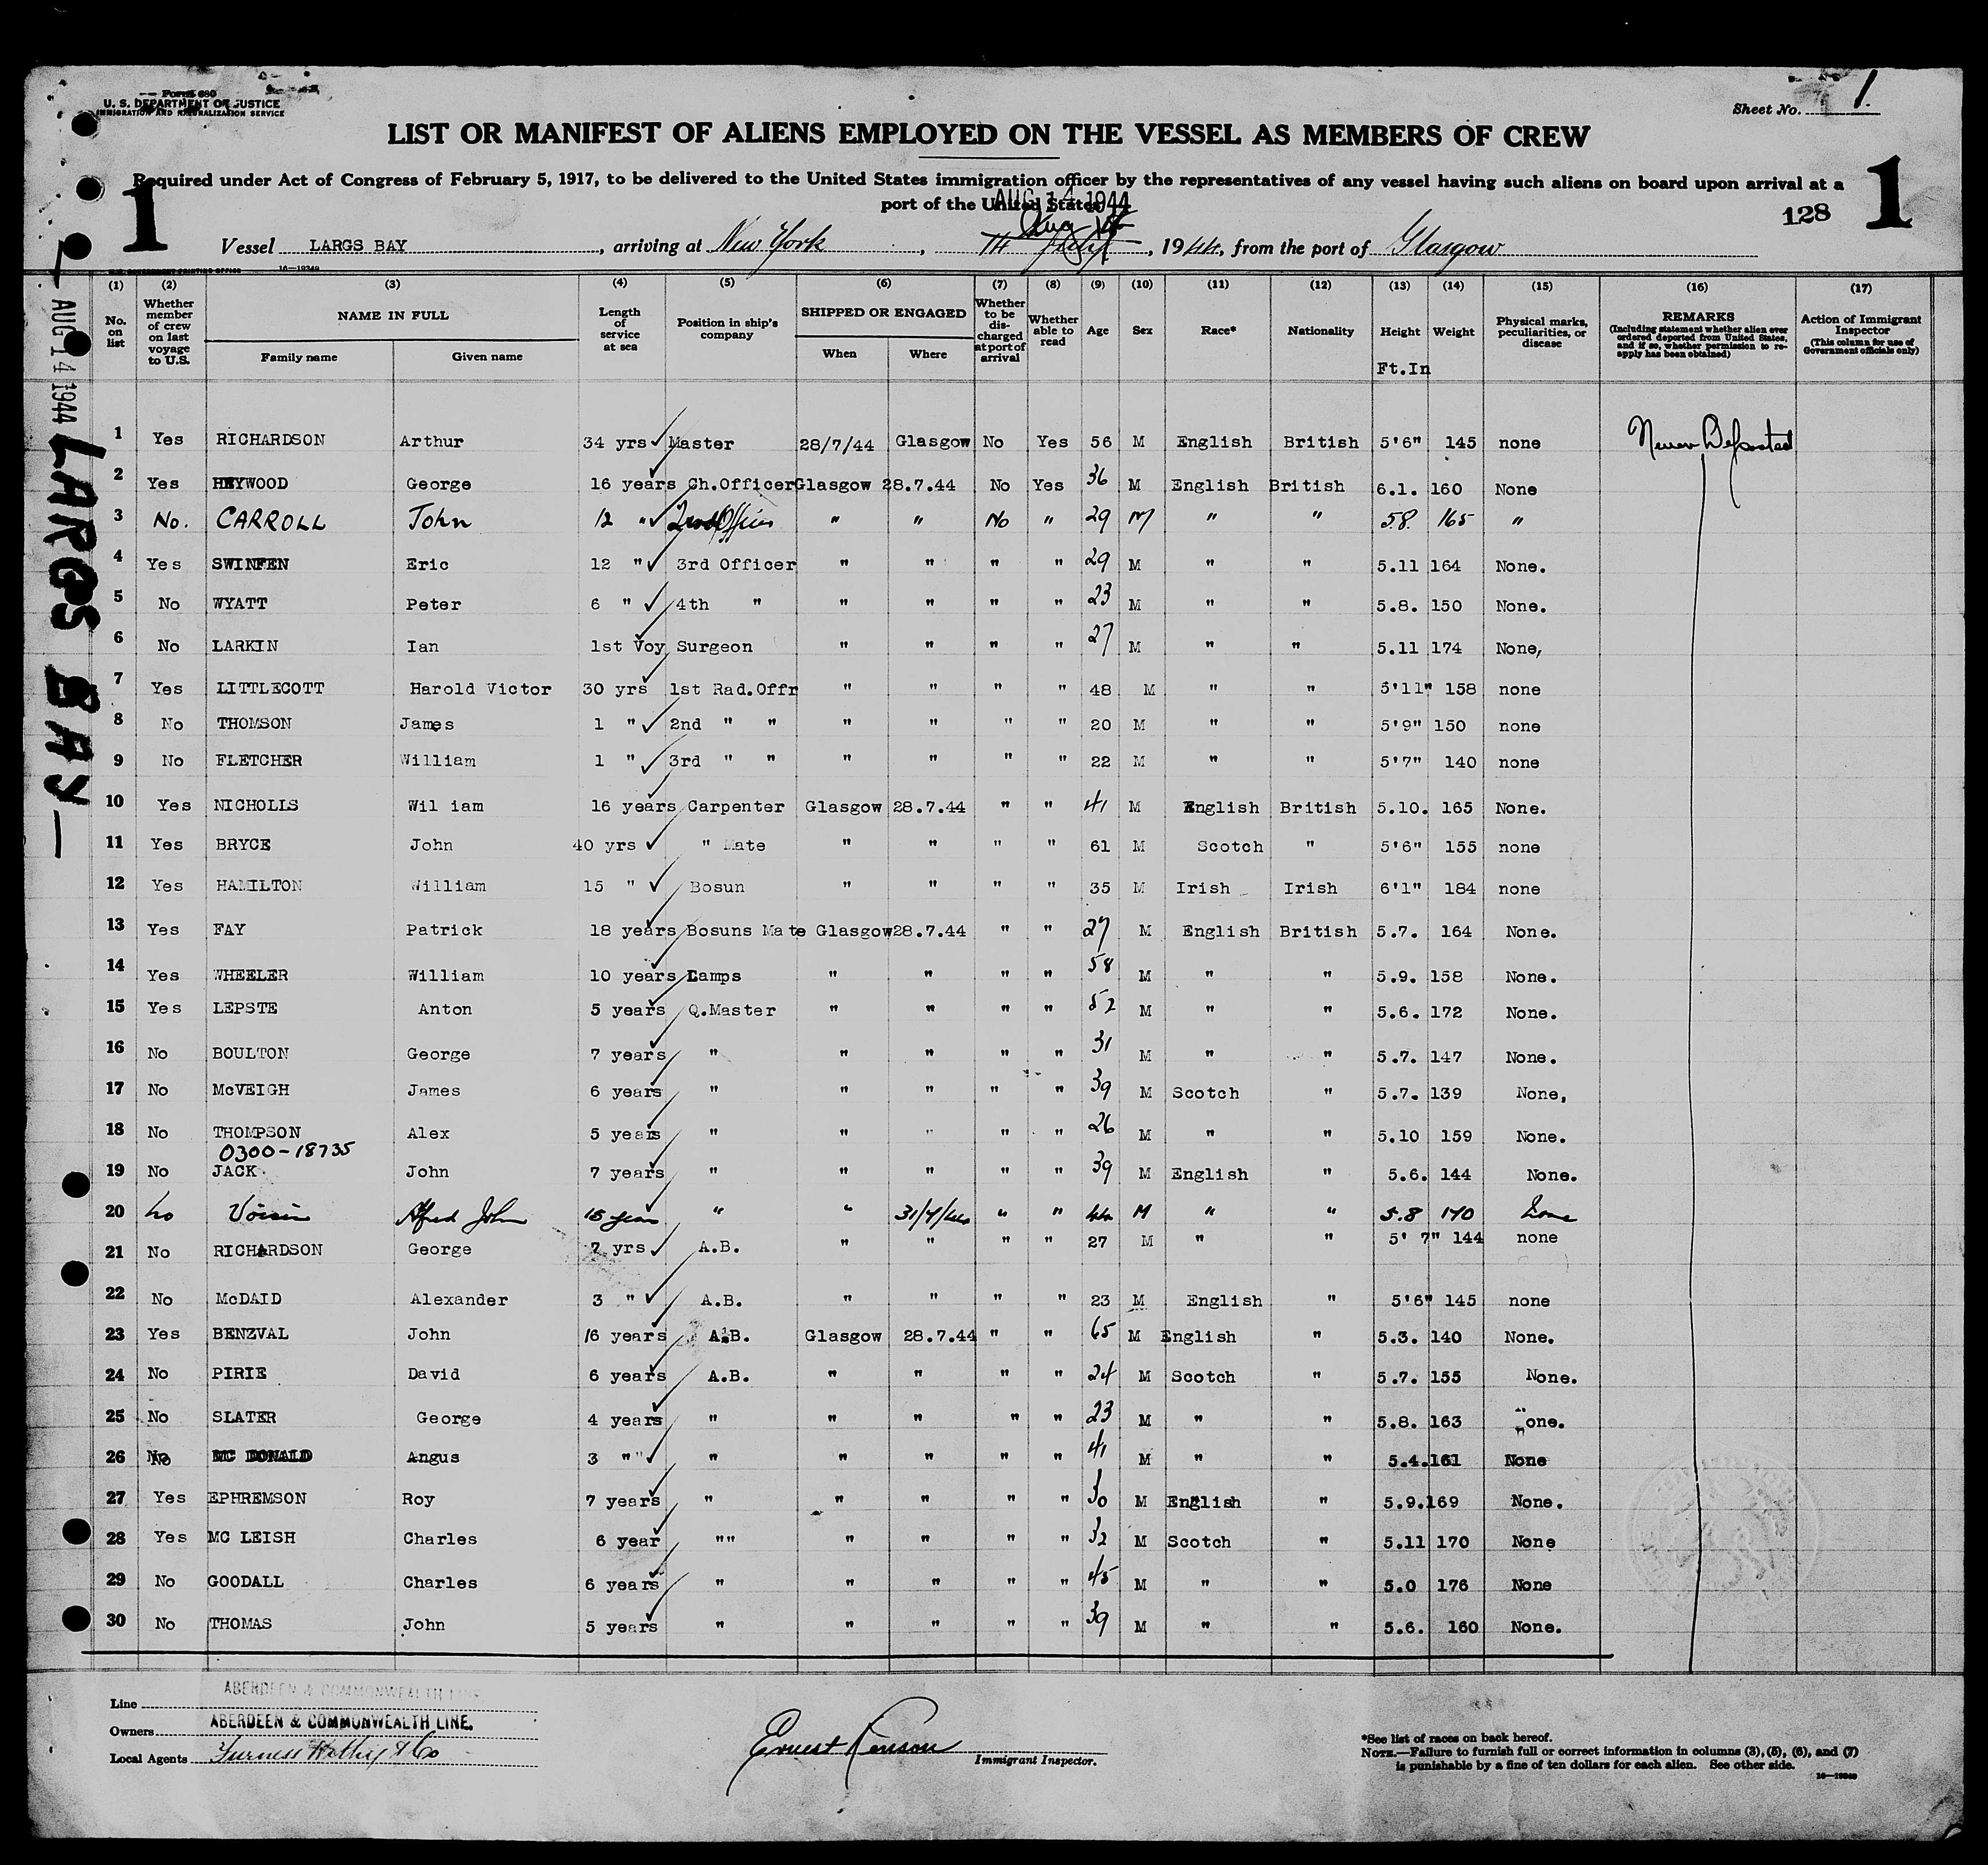 Form 680
U. S. DEPARTMENT OF JUSTICE
IMMIGRATION AND NATURALIZATION SERVICE
Sheet No. 1.
LIST OR MANIFEST OF ALIENS EMPLOYED ON THE VESSEL AS MEMBERS OF CREW
Required under Act of Congress of February 5, 1917, to be delivered to the United States immigration officer by the representatives of any vessel having such aliens on board upon arrival at a
port of the United States
AUG 14 1944
1
1
128
Vessel LARGS BAY, arriving at New York, Aug 1944, from the port of Glasgow
16—19240
AUG 14 1944 LARGS BAY —
(1) (2) (3) (4) (5) (6) (7) (8) (9) (10) (11) (12) (13) (14) (15) (16) (17)
No. on list
Whether member of crew on last voyage to U.S.
NAME IN FULL
Family name
Given name
Length of service at sea
Position in ship's company
SHIPPED OR ENGAGED
When
Where
Whether to be discharged at port of arrival
Whether able to read
Age
Sex
Race*
Nationality
Height
Ft.In
Weight
Physical marks, peculiarities, or disease
REMARKS
(Including statement whether alien ever ordered deported from United States, and if so, whether permission to reapply has been obtained)
Action of Immigrant Inspector
(This column for use of Government officials only)
1 Yes RICHARDSON Arthur 34 yrs Master 28/7/44 Glasgow No Yes 56 M English British 5'6" 145 none Never Deported
2 Yes HEYWOOD George 16 years Ch.Officer Glasgow 28.7.44 No Yes 36 M English British 6.1. 160 None
3 No. CARROLL John 12 " 2nd Officer " " No " 29 M " " 5.8. 165 "
4 Yes SWINFEN Eric 12 " 3rd Officer " " " " 29 M " " 5.11 164 None.
5 No WYATT Peter 6 " 4th " " " " " 23 M " " 5.8. 150 None.
6 No LARKIN Ian 1st Voy Surgeon " " " " 27 M " " 5.11 174 None,
7 Yes LITTLECOTT Harold Victor 30 yrs 1st Rad.Offr " " " " 48 M " " 5'11" 158 none
8 No THOMSON James 1 " 2nd " " " " " " 20 M " " 5'9" 150 none
9 No FLETCHER William 1 " 3rd " " " " " " 22 M " " 5'7" 140 none
10 Yes NICHOLLS Wil iam 16 years Carpenter Glasgow 28.7.44 " " 41 M English British 5.10. 165 None.
11 Yes BRYCE John 40 yrs " Mate " " " " 61 M Scotch " 5'6" 155 none
12 Yes HAMILTON William 15 " Bosun " " " " 35 M Irish Irish 6'1" 184 none
13 Yes FAY Patrick 18 years Bosuns Mate Glasgow 28.7.44 " " 27 M English British 5.7. 164 None.
14 Yes WHEELER William 10 years Lamps " " " " 58 M " " 5.9. 158 None.
15 Yes LEPSTE Anton 5 years Q.Master " " " " 52 M " " 5.6. 172 None.
16 No BOULTON George 7 years " " " " " 31 M " " 5.7. 147 None.
17 No McVEIGH James 6 years " " " " " 39 M Scotch " 5.7. 139 None,
18 No THOMPSON Alex 5 years " " " " " 26 M " " 5.10 159 None.
0300-18735
19 No JACK John 7 years " " " " " 39 M English " 5.6. 144 None.
20 No Voisin Alfred John 15 years " " 31/7/44 " " 44 M " " 5.8 170 None
21 No RICHARDSON George 7 yrs A.B. " " " " 27 M " " 5' 7" 144 none
22 No McDAID Alexander 3 " A.B. " " " " 23 M English " 5'6" 145 none
23 Yes BENZVAL John 16 years A.B. Glasgow 28.7.44 " " 65 M English " 5.3. 140 None.
24 No PIRIE David 6 years A.B. " " " " 24 M Scotch " 5.7. 155 None.
25 No SLATER George 4 years " " " " " 23 M " " 5.8. 163 one.
26 No MC DONALD Angus 3 "" " " " " " 41 M " " 5.4. 161 None
27 Yes EPHREMSON Roy 7 years " " " " " 30 M English " 5.9. 169 None.
28 Yes MC LEISH Charles 6 year "" " " " " 32 M Scotch " 5.11 170 None
29 No GOODALL Charles 6 years " " " " " 45 M " " 5.0 176 None
30 No THOMAS John 5 years " " " " " 39 M " " 5.6. 160 None.
Line ABERDEEN & COMMONWEALTH LINE
Owners ABERDEEN & COMMONWEALTH LINE.
Local Agents Furness Withy & Co
Ernest Renson
Immigrant Inspector.
*See list of races on back hereof.
NOTE.—Failure to furnish full or correct information in columns (3), (5), (6), and (7)
is punishable by a fine of ten dollars for each alien. See other side.
16—19240